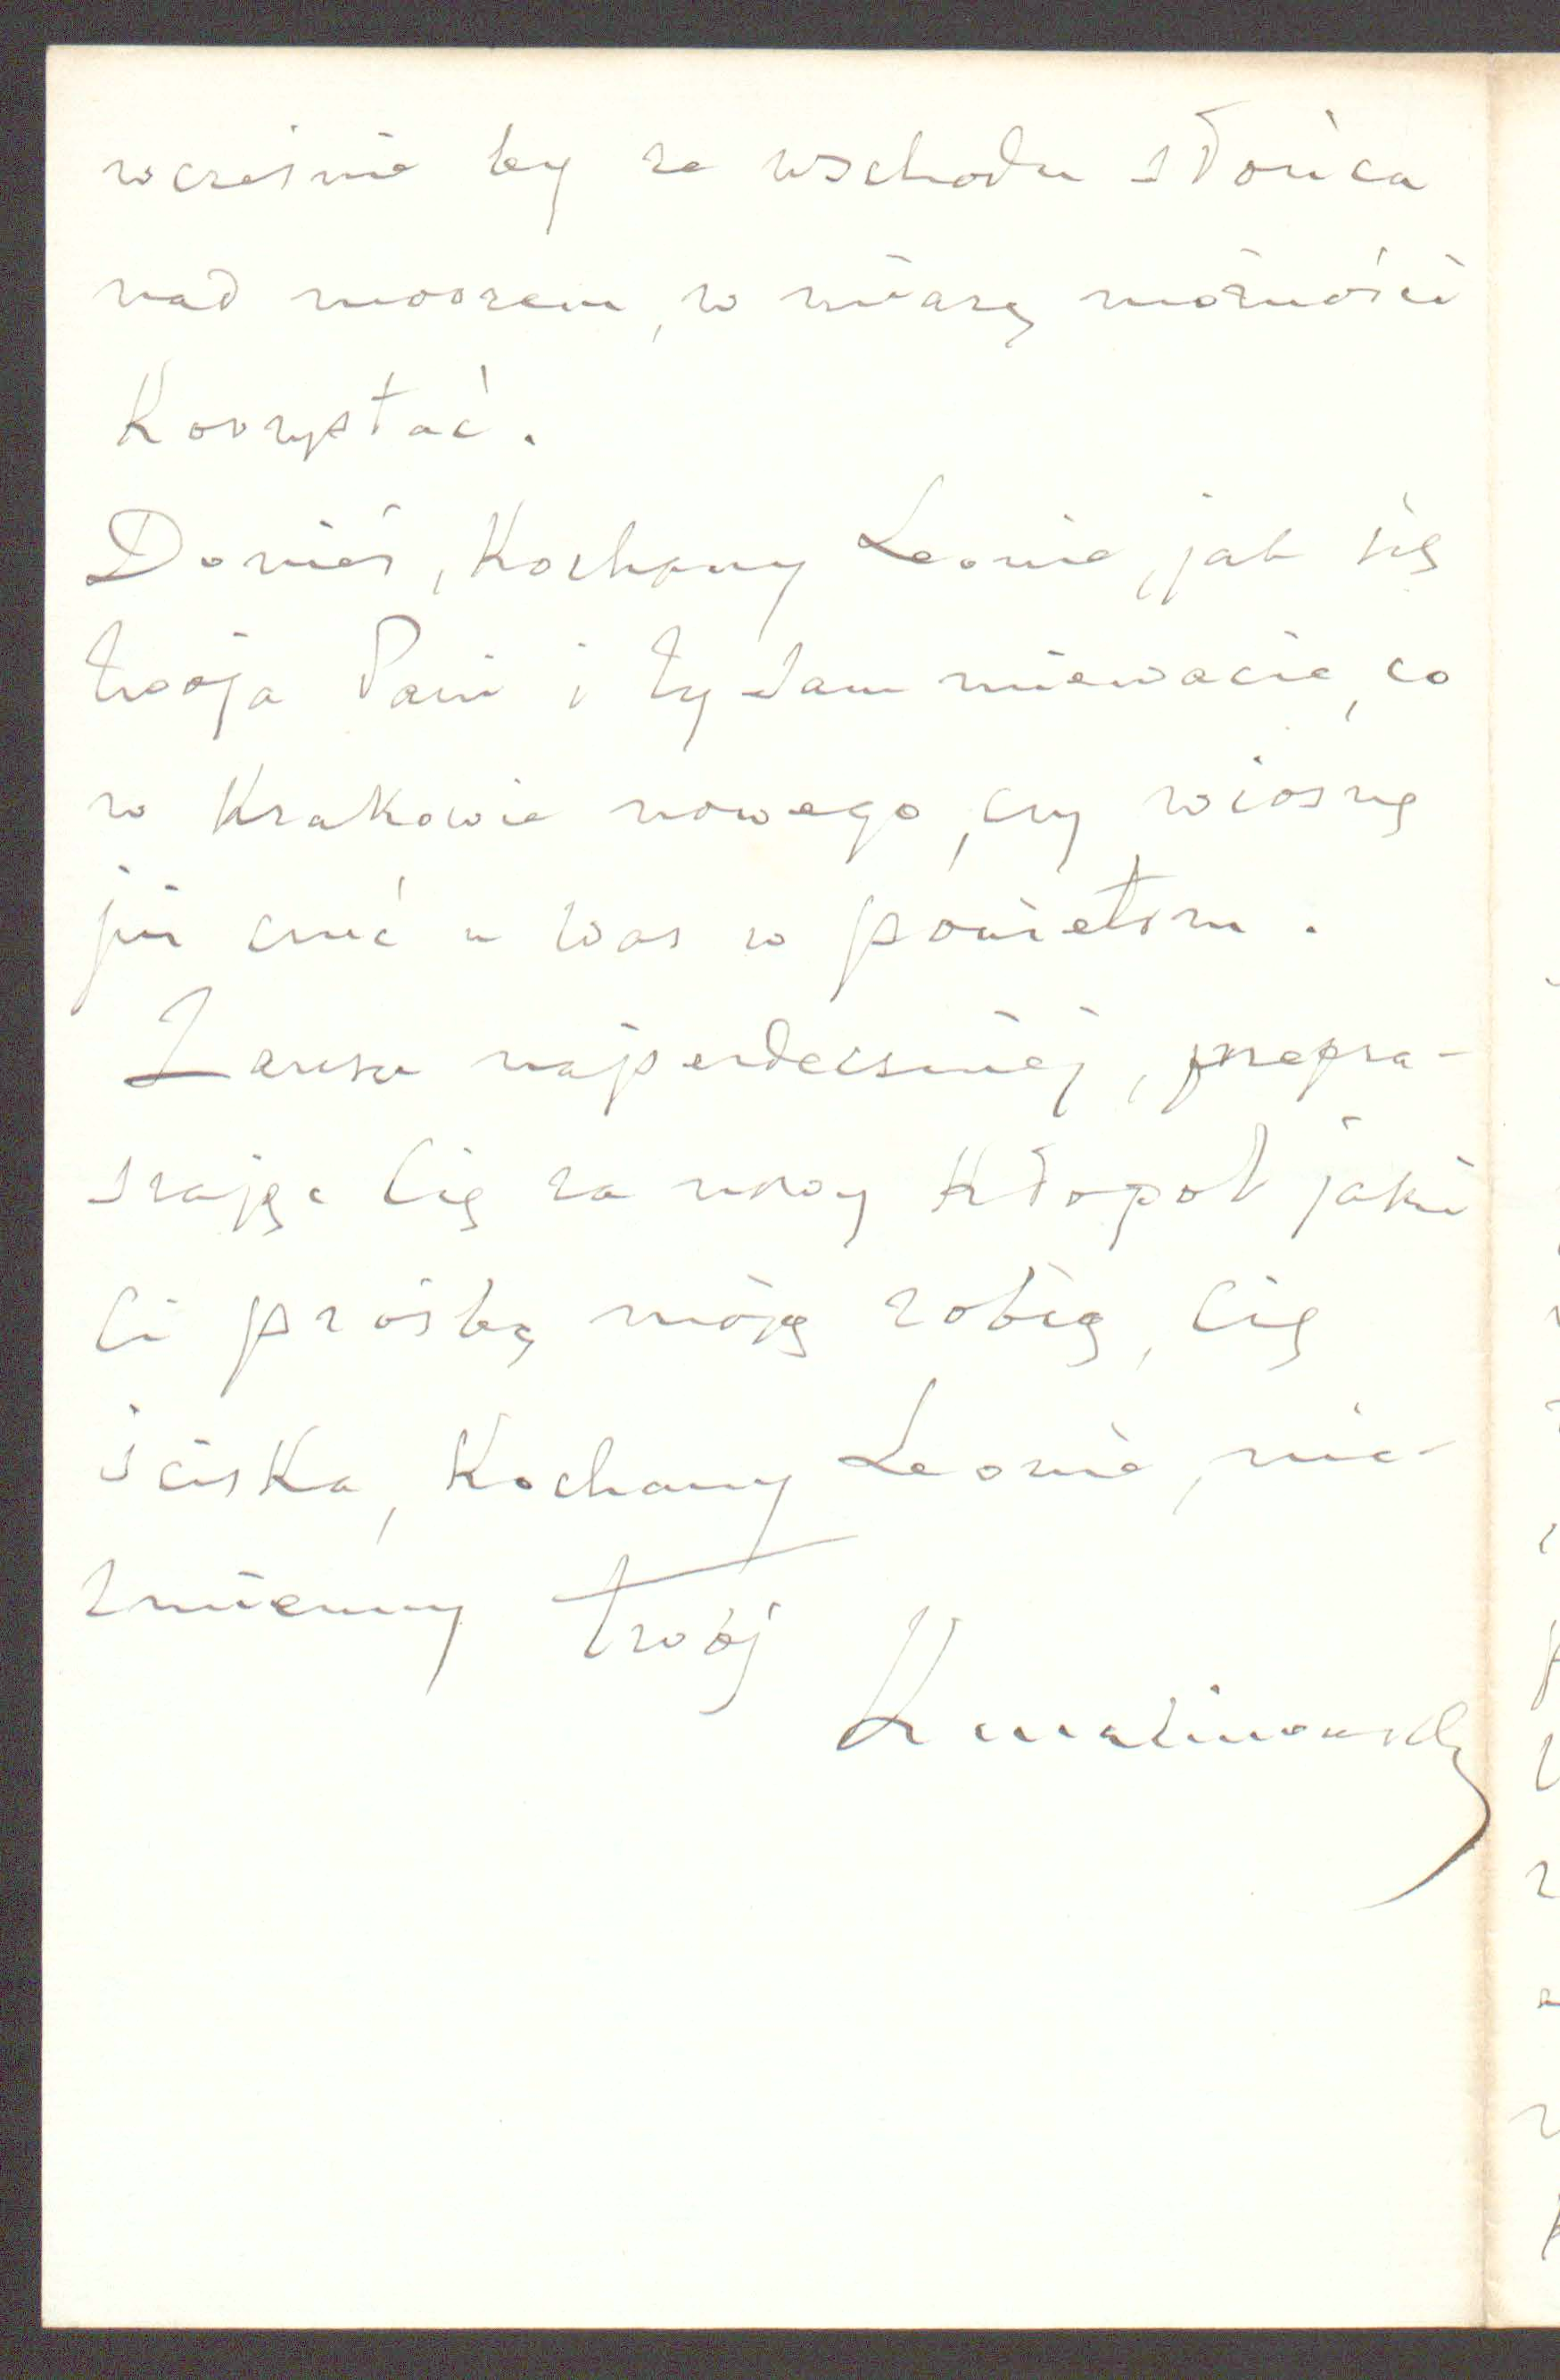 wcześnie by ze wschodu słońca
nad morzem, w miarę możności
korzystać.
Donieś, Kochany Leonie, jak się
twoja Pani i ty sam miewacie, co
w Krakowie nowego, czy wiosnę
już czuć u Was w powietrzu.
Zawsze najserdeczniej, przepra-
szając Cię za nowy kłopot jaki
Ci prośbą moją robię, Cię
ściska, Kochany Leonie, nie-
zmienny twój